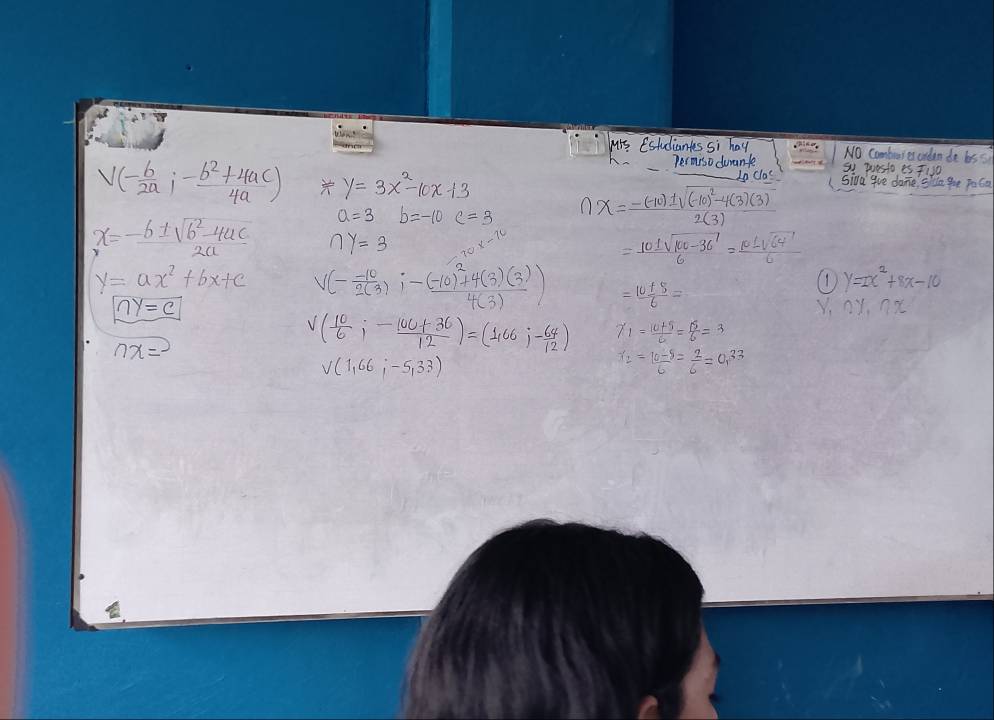 Mis Estudiantes si hay
Permiso durante
la clas
NO Cambiar el orden de los
su puesto es Fijo
Silla que dañe, silla que paga
V(-b/2a ; -b²+4ac/4a)
x = -b±√b²-4ac/2a
y = ax²+bx+c
ny=c
nx=
* y = 3x²-10x+3
a=3 b=-10 c=3
ny = 3
-10 x -10
V(- -10/2(3) ; -(-10)²+4(3)(3)/4(3))
V(10/6 ; -100+36/12) = (1,66 ; -64/12)
V(1,66 ; -5,33)
nx = -(-10)±√(-10)²-4(3)(3)/2(3)
= 10±√100-36/6 = 10±√64/6
= 10±8/6 =
x1 = 10+8/6 = 18/6 = 3
x2 = 10-8/6 = 2/6 = 0,33
① y=2x²+8x-10
V, ny, nx